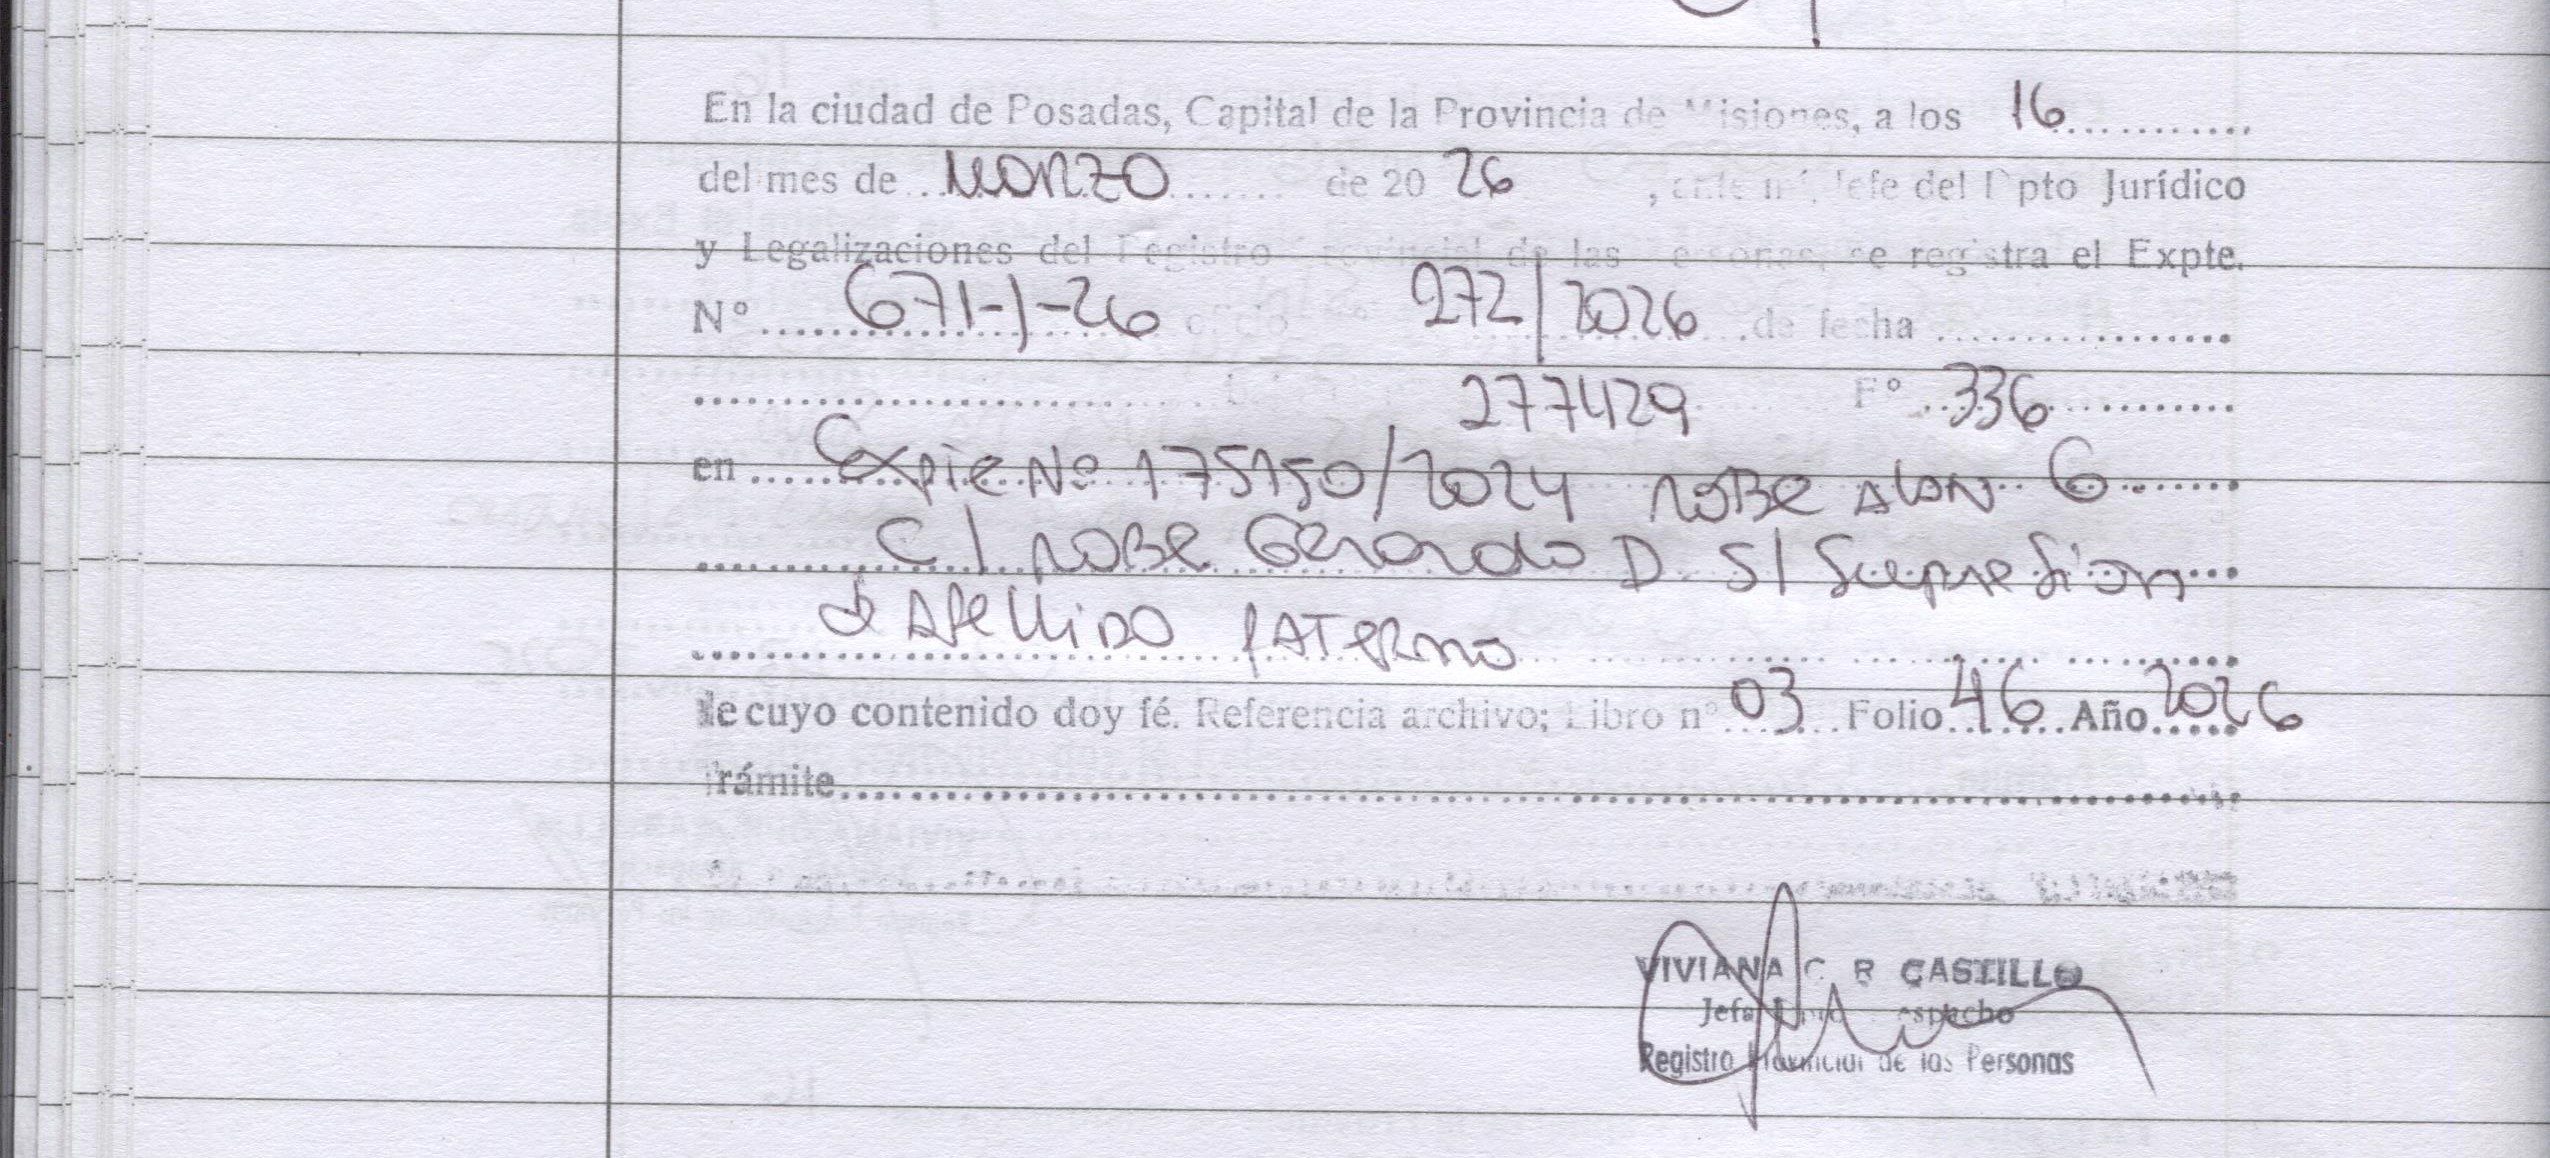 En la ciudad de Posadas, Capital de la Provincia de Misiones, a los 16
del mes de MARZO de 20 26, ante mí, Jefe del Dpto Jurídico
y Legalizaciones del Registro Provincial de las Personas, se registra el Expte.
Nº 671-J-26 oficio 272/2026 de fecha
277429 Fº 336
en Expte Nº 175150/2024 ROBE ALAN G
C/ ROBE Gerardo D S/ Supresion
de APELLIDO PATERNO
de cuyo contenido doy fé. Referencia archivo; Libro nº 03 Folio 46 Año 2026
Trámite
VIVIANA C. R CASTILLO
Jefa Despacho
Registro Provincial de las Personas